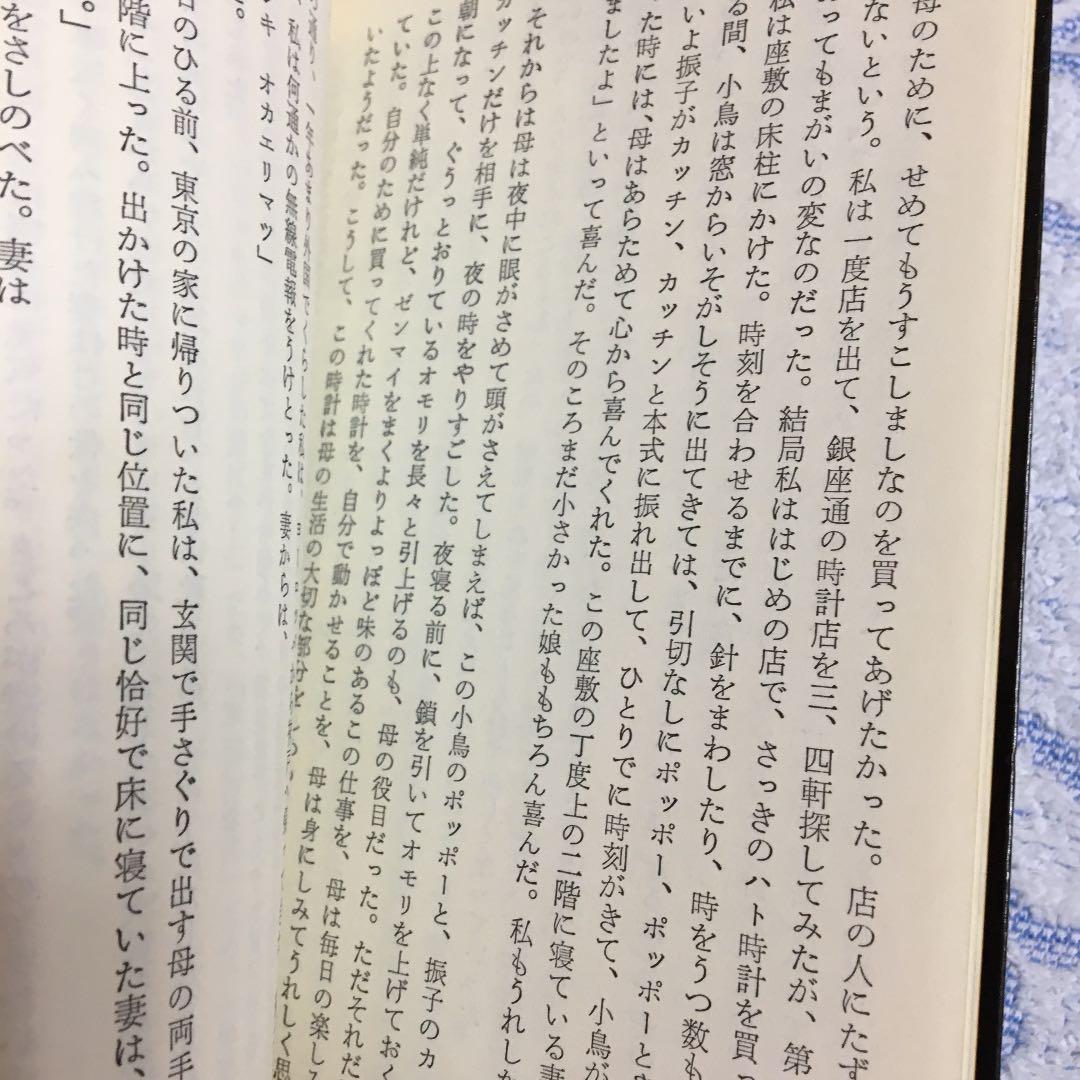 母のために、せめてもうすこしましなのを買ってあげたかった。店の人にたず
ないという。私は一度店を出て、銀座通の時計店を三、四軒探してみたが、第
あってもまがいの変なのだった。結局私ははじめの店で、さっきのハト時計を買っ
私は座敷の床柱にかけた。時刻を合わせるまでに、針をまわしたり、時をうつ数も
る間、小鳥は窓からいそがしそうに出てきては、引切なしにポッポー、ポッポーと
いよ振子がカッチン、カッチンと本式に振れ出して、ひとりでに時刻がきて、小鳥が
た時には、母はあらためて心から喜んでくれた。この座敷の丁度上の二階に寝ている妻
ましたよ」といって喜んだ。そのころまだ小さかった娘ももちろん喜んだ。私もうれした
それからは母は夜中に眼がさめて頭がさえてしまえば、この小鳥のポッポーと、振子のカ
カッチンだけを相手に、夜の時をやりすごした。夜寝る前に、鎖を引いてオモリを上げておく
朝になって、ぐうっとおりているオモリを長々と引上げるのも、母の役目だった。ただそれだ
この上なく単純だけれど、ゼンマイをまくよりよっぽど味のあるこの仕事を、母は毎日の楽し
ていた。自分のために買ってくれた時計を、自分で動かせることを、母は身にしみてうれしく思
いたようだった。こうして、この時計は母の生活の大切な部分を
一年あまり外国でくらした私は、
私は何通かの無線電報をうけとった。妻からは、
オカエリマツ」
日のひる前、東京の家に帰りついた私は、玄関で手さぐりで出す母の両手
階に上った。出かけた時と同じ位置に、同じ恰好で床に寝ていた妻は、
。」
をさしのべた。妻は